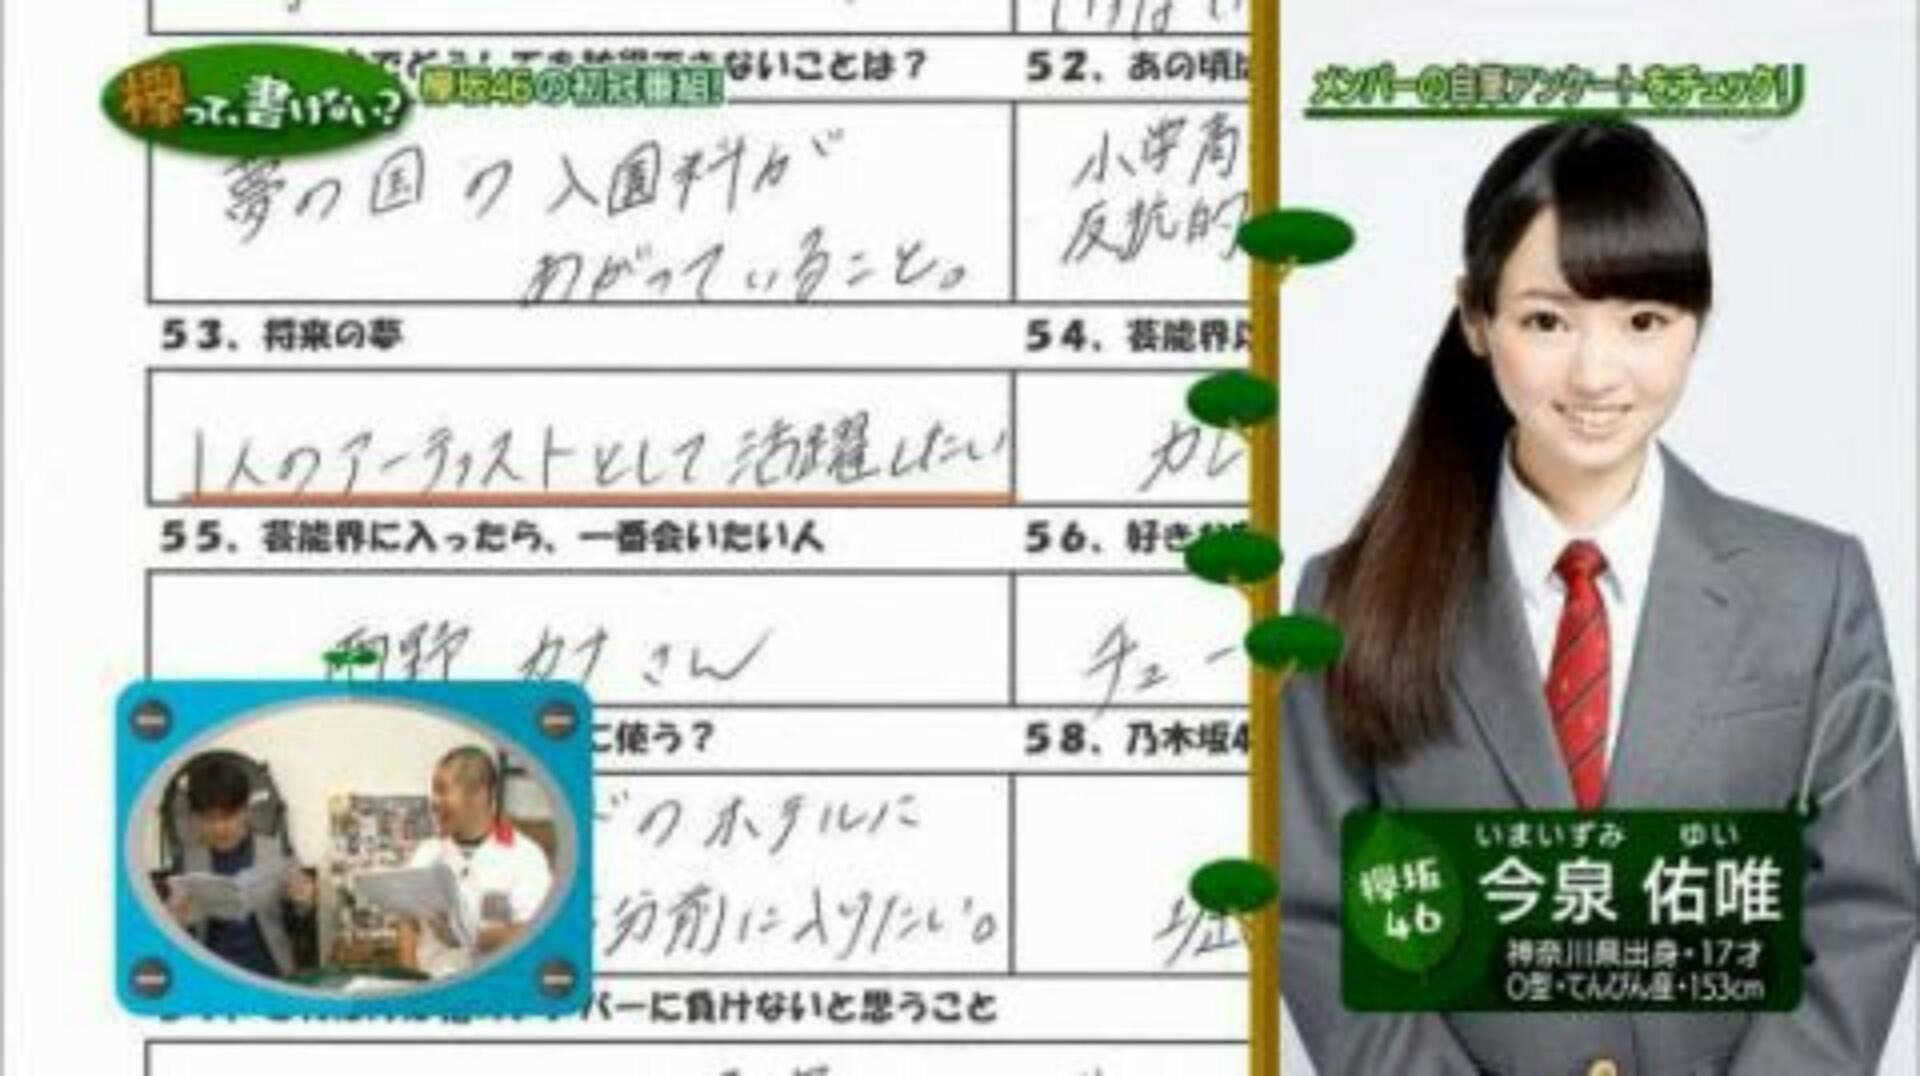 欅って、書けない?
欅坂46の初冠番組!
ないことは?
52、あの頃
メンバーの自筆アンケートをチェック!
夢の国の入園料が
あがっていること。
小学高
反抗的
53、将来の夢
54、芸能界
1人のアーティストとして活躍したい
カレ
55、芸能界に入ったら、一番会いたい人
56、好き
カナさん
チュー
に使う?
58、乃木坂4
のホテルに
分前に入りたい。
バーに負けないと思うこと
いまいずみ ゆい
欅坂46
今泉 佑唯
神奈川県出身・17才
O型・てんびん座・153cm